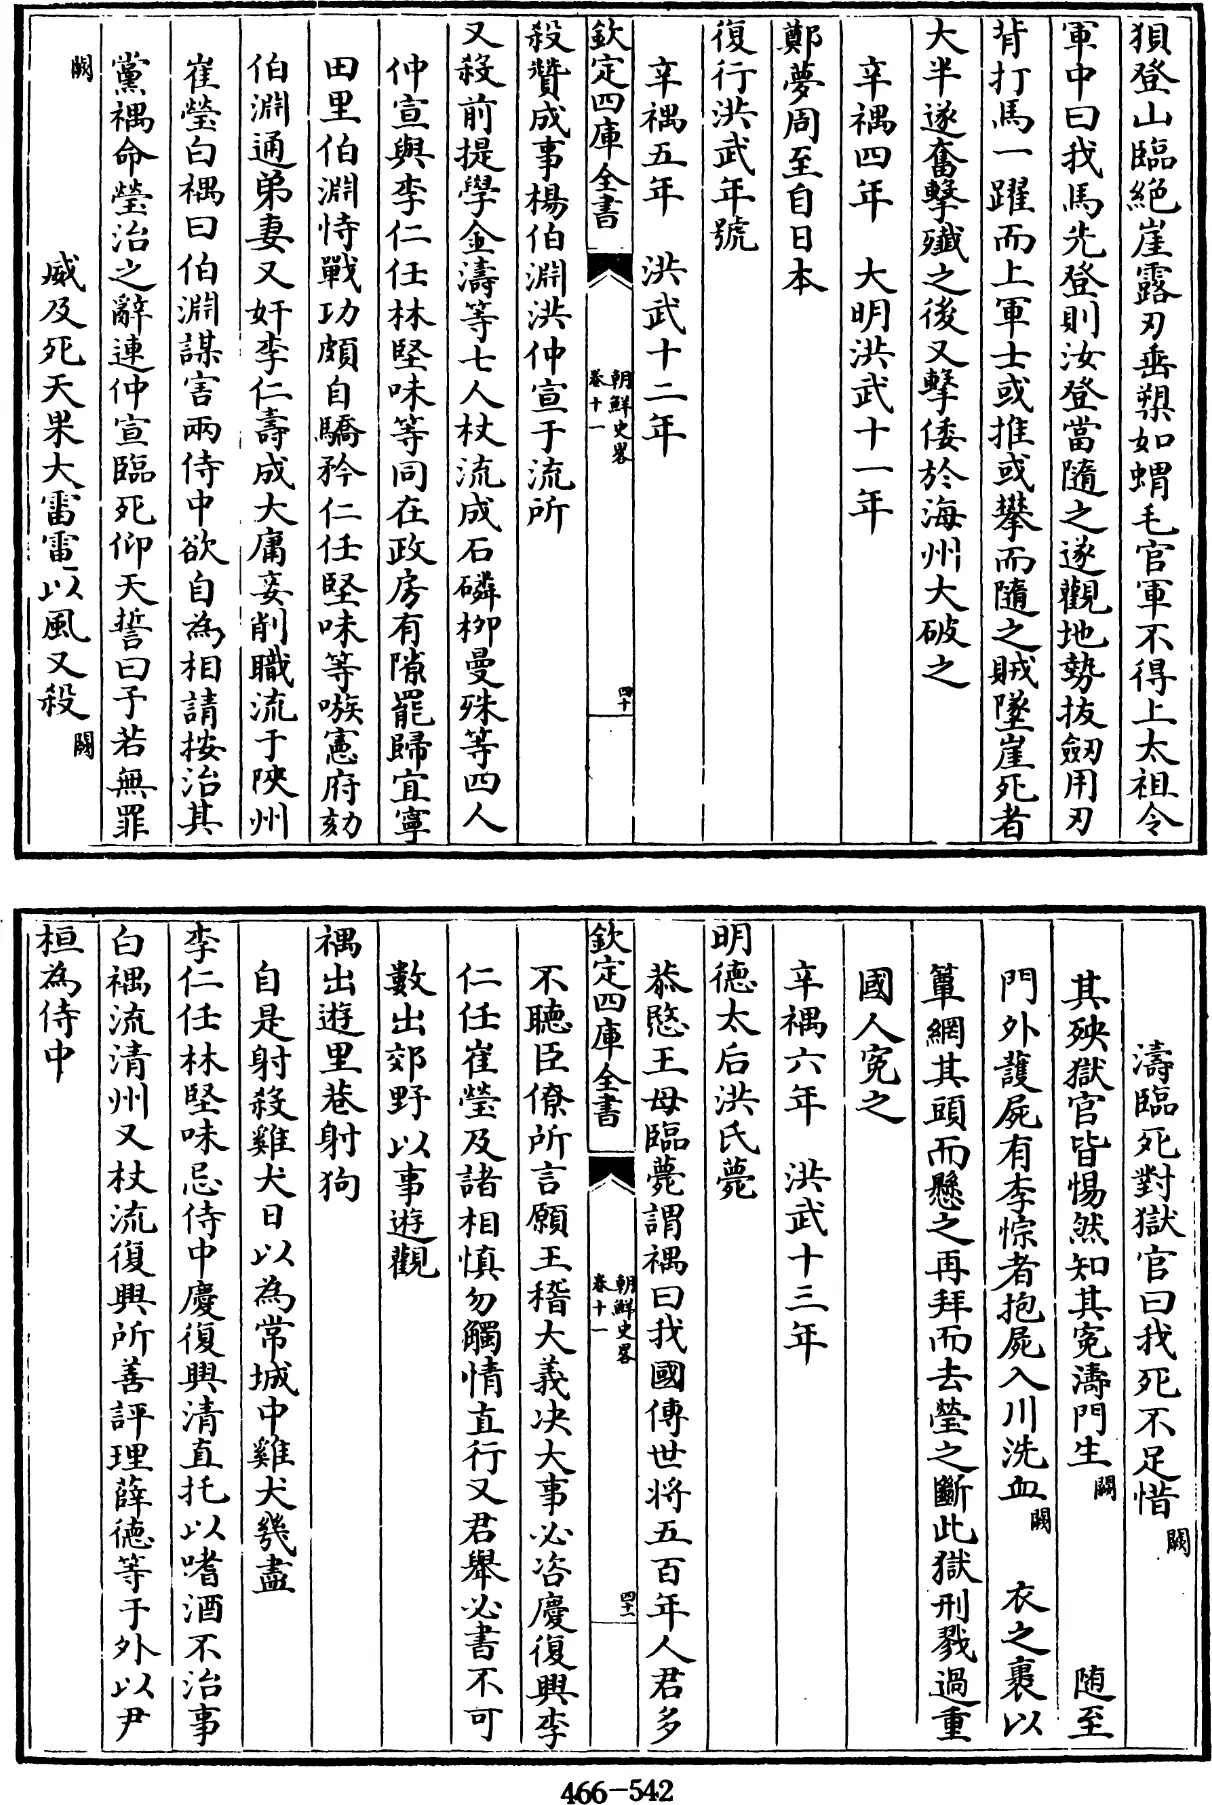 狽登山臨絶崖露刃垂槊如蝟毛官軍不得上太祖令
軍中曰我馬先登則汝登當隨之遂觀地勢拔劒用刃
背打馬一躍而上軍士或推或攀而隨之賊墜崖死者
大半遂奮擊殲之後又擊倭於海州大破之
辛禑四年　大明洪武十一年
鄭夢周至自日本
復行洪武年號
辛禑五年　洪武十二年
欽定四庫全書
朝鮮史畧
卷十一
四十
殺贊成事楊伯淵洪仲宣于流所
又殺前提學金濤等七人杖流成石磷柳曼殊等四人
仲宣與李仁任林堅味等同在政房有隙罷歸宜寧
田里伯淵恃戰功頗自驕矜仁任堅味等嗾憲府劾
伯淵通弟妻又奸李仁壽成大庸妾削職流于陜州
崔瑩白禑曰伯淵謀害兩侍中欲自為相請按治其
黨禑命瑩治之辭連仲宣臨死仰天誓曰予若無罪
闕　威及死天果大雷雷以風又殺　闕
濤臨死對獄官曰我死不足惜　闕
其殃獄官皆惕然知其寃濤門生　闕　随至
門外護屍有李悰者抱屍入川洗血　闕　衣之裹以
簟網其頭而懸之再拜而去瑩之斷此獄刑戮過重
國人寃之
辛禑六年　洪武十三年
明德太后洪氏薨
恭愍王母臨薨謂禑曰我國傳世将五百年人君多
欽定四庫全書
朝鮮史畧
卷十一
四十一
不聽臣僚所言願王稽大義决大事必咨慶復興李
仁任崔瑩及諸相慎勿觸情直行又君舉必書不可
數出郊野以事遊觀
禑出遊里巷射狗
自是射殺雞犬日以為常城中雞犬幾盡
李仁任林堅味忌侍中慶復興清直托以嗜酒不治事
白禑流清州又杖流復興所善評理薛徳等于外以尹
桓為侍中
466-542